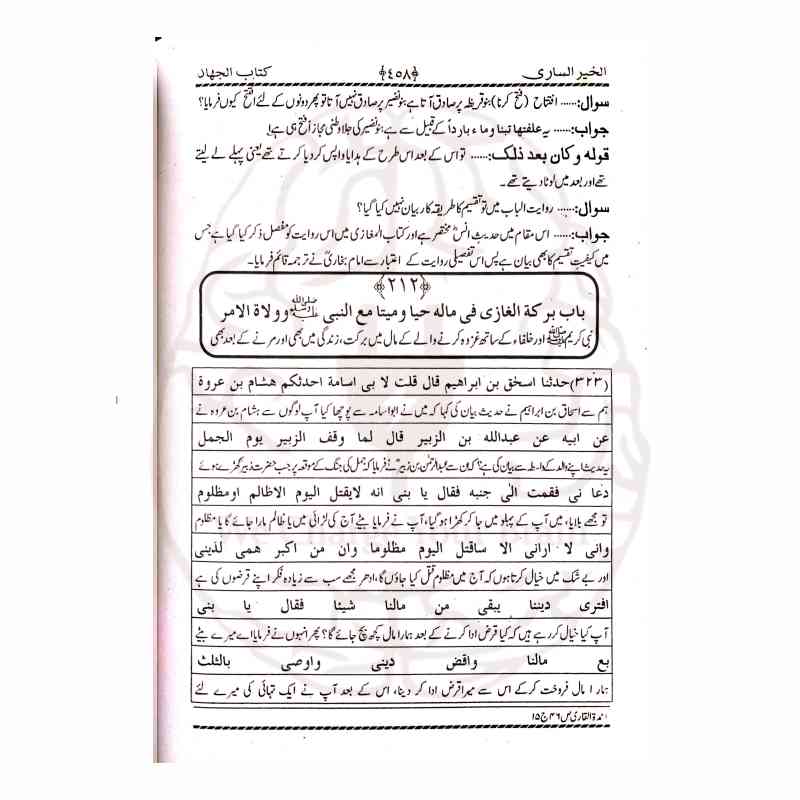 الخیر الساری ﴿۴۵۸﴾ کتاب الجهاد
سوال:...... افتتاح (فتح کرنا) بنو قریظہ پر صادق آتا ہے بنو نضیر پر صادق نہیں آتا تو پھر دونوں کے لئے افتتح کیوں فرمایا؟
جواب:...... یہ علفتها تبنا وماء باردا کے قبیل سے ہے بنو نضیر کی جلا وطنی مجازاً فتح ہی ہے۱
قوله وکان بعد ذلک:...... تو اس کے بعد اس طرح کے ہدایا واپس کر دیا کرتے تھے یعنی پہلے لے لیتے
تھے اور بعد میں لوٹا دیتے تھے۔
سوال:...... روایت الباب میں تو تقسیم کا طریقہ کار بیان نہیں کیا گیا؟
جواب:...... اس مقام میں حدیث انسؓ مختصر ہے اور کتاب المغازی میں اس روایت کو مفصل ذکر کیا گیا ہے جس
میں کیفیت تقسیم کا بھی بیان ہے پس اس تفصیلی روایت کے اعتبار سے امام بخاریؒ نے ترجمہ قائم فرمایا۔
﴿۲۱۲﴾
باب برکة الغازی فی ماله حیا ومیتا مع النبی ﷺ وولاة الامر
نبی کریم ﷺ اور خلفاء کے ساتھ غزوہ کرنے والے کے مال میں برکت، زندگی میں بھی اور مرنے کے بعد بھی
(۳۲۳) حدثنا اسحٰق بن ابراهیم قال قلت لا بی اسامة احدثکم هشام بن عروة
ہم سے اسحاق بن ابراہیم نے حدیث بیان کی کہا کہ میں نے ابو اسامہ سے پوچھا کیا آپ لوگوں سے ہشام بن عروہ نے
عن ابیه عن عبدالله بن الزبیر قال لما وقف الزبیر یوم الجمل
یہ حدیث اپنے والد کے واسطہ سے بیان کی ہے؟ کہ ان سے عبدالرحمٰن بن زبیرؓ نے فرمایا کہ جمل کی جنگ کے موقعہ پر جب حضرت زبیرؓ کھڑے ہوئے
دعا نی فقمت الیٰ جنبه فقال یا بنی انه لایقتل الیوم الاظالم اومظلوم
تو مجھے بلایا، میں آپ کے پہلو میں جا کر کھڑا ہو گیا، آپ نے فرمایا بیٹے آج کی لڑائی میں یا ظالم مارا جائے گا یا مظلوم
وانی لا ارانی الا ساقتل الیوم مظلوما وان من اکبر همی لدینی
اور بے شک میں خیال کرتا ہوں کہ آج میں مظلوم قتل کیا جاؤں گا، ادھر مجھے سب سے زیادہ فکر اپنے قرضوں کی ہے
افتری دیننا یبقی من مالنا شیئا فقال یا بنی
آپ کیا خیال کر رہے ہیں کہ کیا قرض ادا کرنے کے بعد ہمارا مال کچھ بچ جائے گا؟ پھر انہوں نے فرمایا اے میرے بیٹے
بع مالنا واقض دینی واوصی بالثلث
ہمارا مال فروخت کر کے اس سے میرا قرض ادا کر دینا، اس کے بعد آپ نے ایک تہائی کی میرے لئے
القاری ص ۴۶ ج ۱۵